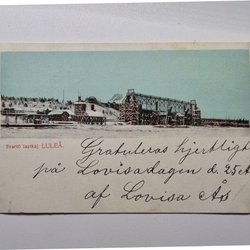 Svartö lastkaj LULEÅ.
Gratuleras hjertligt
på Lovisadagen d. 25 A
af Lovisa Ås